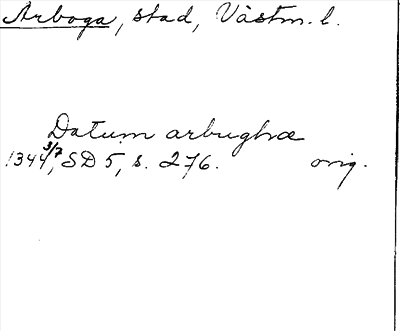 Arboga, stad, Västm. l.
Datum arbughræ
1344 3/7, SD 5, s. 276. orig.